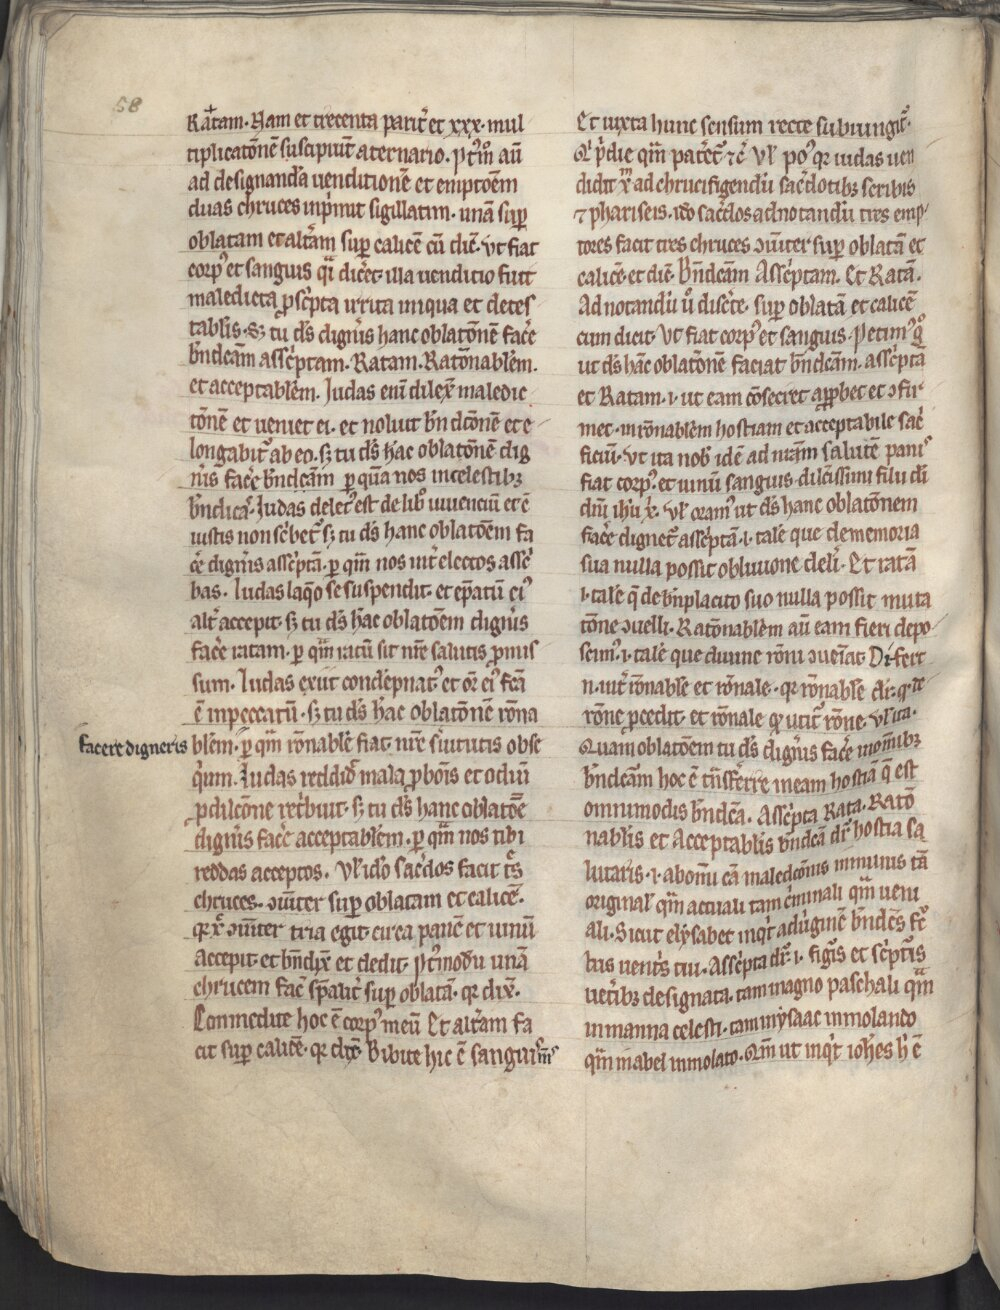 58
Ratam. Nam et trecenta parit̉ et xxx. mul
tiplicatōnē suscipiūt a ternario. Pt̉mͦ aū
ad designanda uenditionē et emptōem
duas chruces inp̉mit sigillatim. unā sup̱
oblatam et alt̉am sup̱ calicē cū diē. ut fiat
corpꝰ et sanguis qͣi dicēt. illa uenditio fuit
maledicta ꝓsc̉pta irrita iniqua et detes
tabl̄is. sꝫ tu dn̄s dignȓis hanc oblatōnē facē
bn̄dcām assc̉ptam. Ratam. Ratōnabl̄em.
et acceptabl̄em. Iudas eni dilex̄ maledic
tōnē et ueniet ei. et noluit bn̄dc̄tōnē et e
longabit᷑ ab eo. sꝫ tu dn̄s hāc oblatōnē dig
nȓis facē bn̄dcām ꝑ quā nos in celestibꝫ
bn̄dicā. Iudas delet̉ est de libͦ uiuenciū et cū
iustis non sc̉bet᷑. sꝫ tu dn̄s hanc oblatōem fa
cē dignȓis assc̉ptā. ꝑ qͣm nos int̉ electos assc̉
bas. Iudas laqͦo se suspendit. et ep̄atū eiꝰ
alt̉ accepit. sꝫ tu dn̄s hāc oblatōem dignȓis
facē ratam. ꝑ qͣm ratū sit nr̄e salutis ꝓmis
sum. Iudas exiit condēpnatꝰ et or̄o eiꝰ fc̄a
ē in peccatū. sꝫ tu dn̄s hāc oblatōnē rōna
facere digneris
blēm. ꝑ qͣm rōnabl̄e fiat. nr̄e s̉uitutis obse
q̉um. Iudas reddidͭ mala ꝓ bonis et odiū
ꝓ dilc̄ōne ret̉buit. sꝫ tu dn̄s hanc oblatōē
dignȓis facē acceptabl̄em. ꝑ qͣm nos tibi
reddas acceptos. Ul̄ idō sac̉dos facit tēs
chruces. ɔiūt̉ sup̱ oblatam et calicē.
qꝛ x̄ ɔiūt̉ tria egit circa panē et uinū
accepit. et bn̄dix̄ et dedit. Pt̉modū unā
chrucem fac̄ sp̄alit̉ sup̱ oblatā. qꝛ dix̄.
Commedite hoc ē corpꝰ meū Et alt̉am fa
cit sup̱ calicē. qꝛ dix̄ Bibite hic ē sanguis mꝰ
Et iuxta hunc sensum recte subiungit᷑.
Qͥ p̉die qͣm pat̉et᷑ ⁊c̄ Ul̄ poꝰ qꝛ iudas uen
didit x̄m ad chrucifigendū sac̉dotibꝫ scribis
⁊ phariseis. idō sac̉dos ad notandū tres emp
tores facit tres chruces ɔiūt̉ sup̱ oblatā et
calicē. et diē. Bn̄dcām Assc̉ptam. Et Ratā.
Ad notandū ủ disc̉te. sup̱ oblatā et calicē
cum dicit. Ut fiat corpꝰ et sanguis. Petimꝰ gͦ
ut dn̄s hāc oblatōnē faciat bn̄dcām. assc̉ptā
et Ratam. i. ut eam cōsecret appḇet et ɔfir
met. in rōnablēm hostiam et acceptabile sac̉
ficiū. ut ita nobis idē ad nr̄am salutē panis
fiat corpꝰ. et uinū sanguis. dilc̄issimi filii di
dn̄i ih̄u x̄. Ul̄ oramꝰ ut dn̄s hanc oblatōnem
facē dignet᷑ assc̉ptā. i. talē que de memoria
sua nulla possit obliuione delỉ. Et ratā
i. talē q̄ de bn̄placito suo nulla possit muta
tōne ɔuelli. Ratōnablēm aū eam fieri depo
scimꝰ. i. talē que diuine rōni ɔueīat Differt
n. int̉ rōnable et rōnale. qꝛ rōnable dr̄. qͦ de
rōne pcedit. et rōnale qͦ utit᷑ rōne. ul̄ ita.
Quam oblatōem tu dn̄s dignȓis facē in om̄ibꝫ
bn̄dcām hoc ē tn̄sferre in eam hostiā q̄ est
omnimodis bn̄dcā. Assc̉pta Rata. Ratō
nabl̄is et Acceptabl̄is bn̄dcā dr̄ hostia sa
lutaris. i. ab om̄i cā maledcōnis inmunis tā
original̄ qͣm actuali tam c̉minali qͣm ueni
ali. Sicut elysabet inqͥt ad uirginē bn̄dcs fͨ
tus uent̉s tui. Assc̉pta dr̄. i. figͥs et sc̉ptis
uet̉ibꝫ designata. tam magno paschali qͣm
in manna celesti. tam in ysaac inmolando
qͣm in abel inmolato. Qͣm ut inqͥt ioh̄es hͥ ē